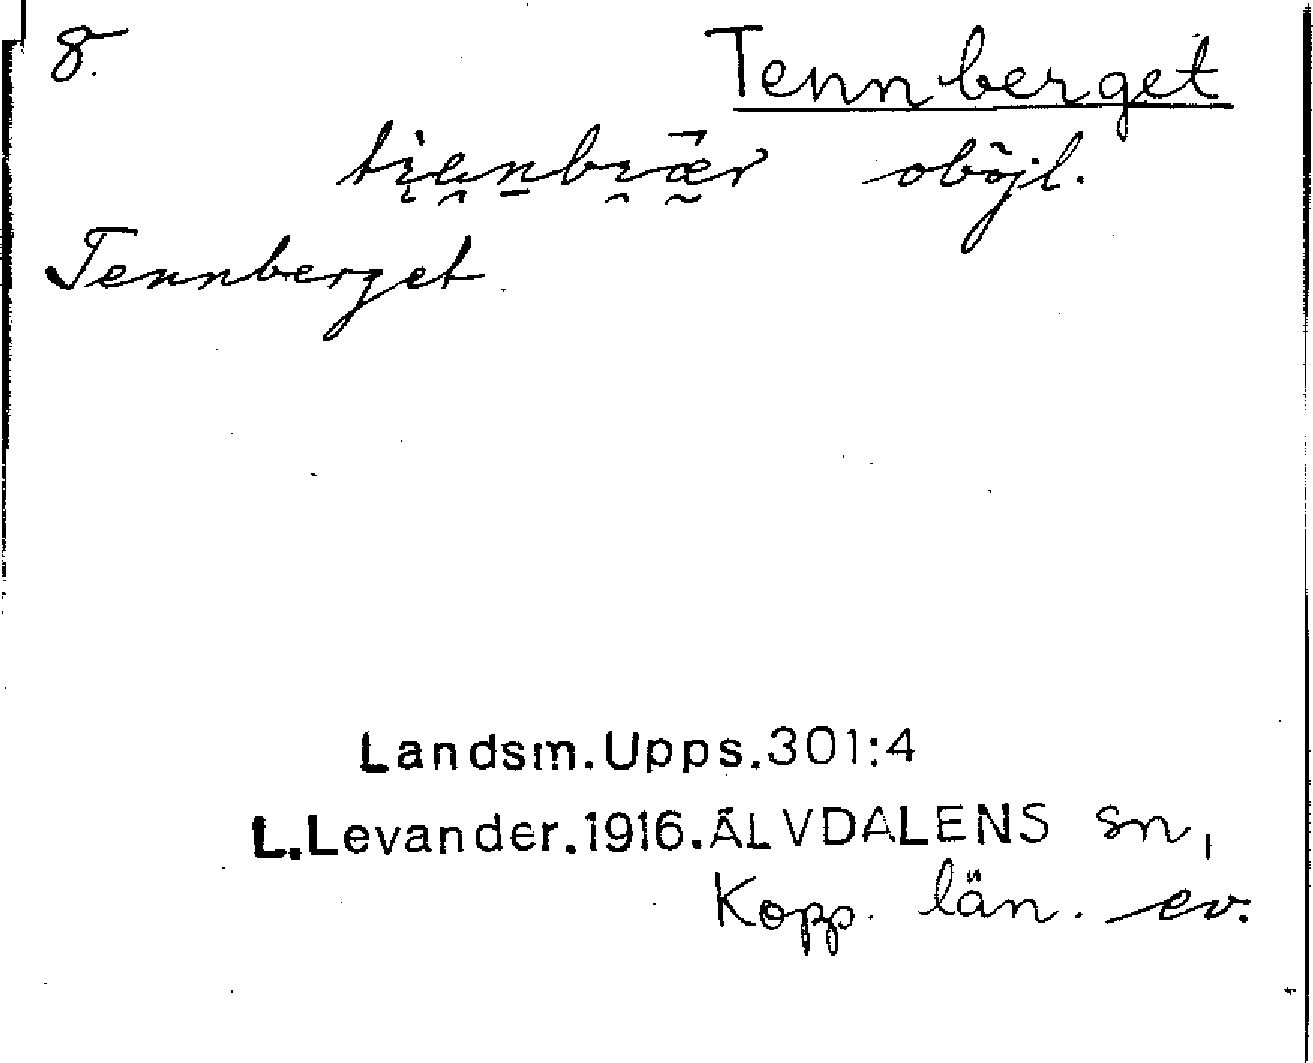 8.
Tennberget
tienbiær oböjl.
Tennberget
Landsm.Upps.301:4
L.Levander.1916.ÄLVDALENS sn,
Kopp. län. ev.